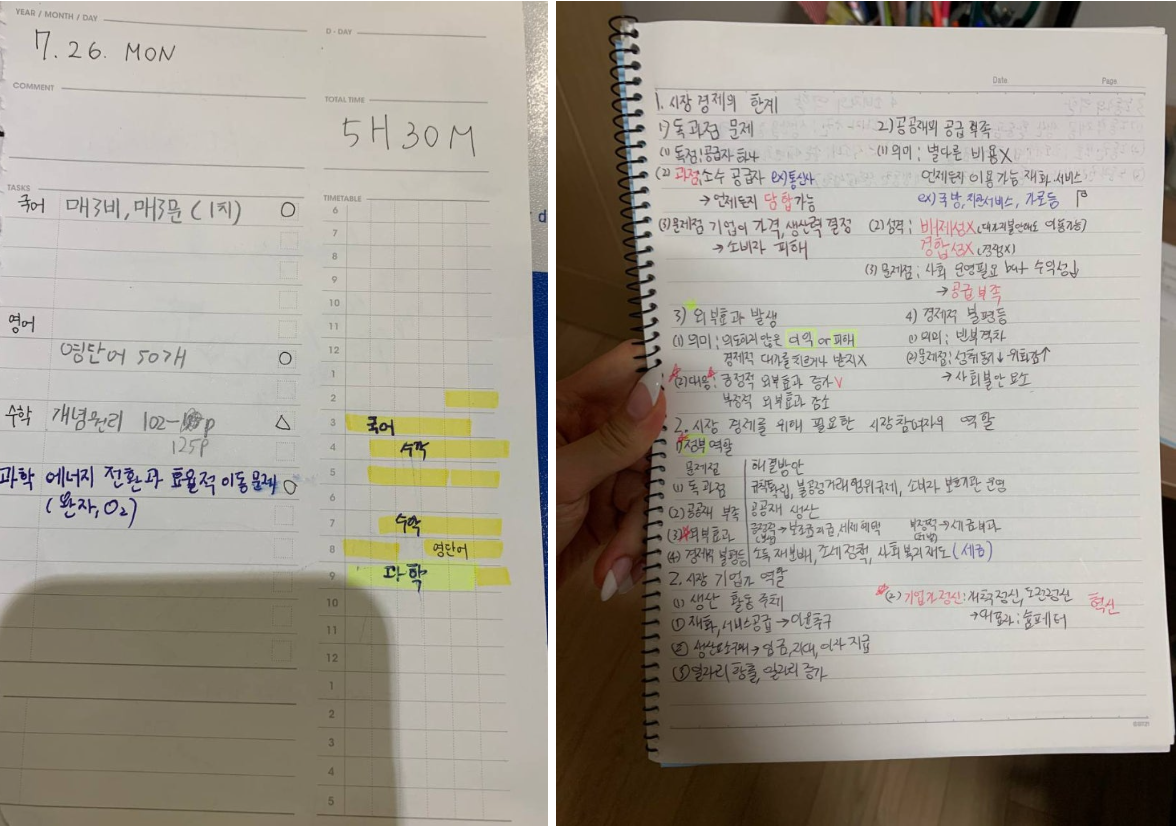 YEAR / MONTH / DAY
7. 26. MON
D - DAY
COMMENT
TOTAL TIME
5H 30M
TASKS
국어 매3비, 매3문 (1치) ○
영어
영단어 50개 ○
수학 개념원리 102- p △
125p
과학 에너지 전환과 효율적 이용 문제 ○
(완자, O₂)
TIMETABLE
6
7
8
9
10
11
12
1
2
3 국어
4 수학
5
6
7 수학
8 영단어
9 과학
10
11
12
1
2
3
4
5
d
Date Page
1. 시장 경제의 한계
1) 독과점 문제
(1) 독점; 공급자 하나
(2) 과점; 소수 공급자 ex) 통신사
→ 언제든지 담합 가능
(3) 문제점 기업이 가격, 생산력 결정
→ 소비자 피해
2) 공공재의 공급 부족
(1) 의미; 별다른 비용X
언제든지 이용가능 재화, 서비스
ex) 국방, 치안서비스, 가로등
(2) 성격; 배제성X (대가 지불안해도 이용가능)
경합성X (경쟁X)
(3) 문제점; 사회 운영필요 but 수익성↓
→ 공급 부족
3) 외부효과 발생
(1) 의미; 의도하지 않은 이익 or 피해
경제적 대가를 치르거나 받지X
(2) 대응; 긍정적 외부효과 증가
부정적 외부효과 감소
4) 경제적 불평등
(1) 의의; 빈부격차
(2) 문제점; 성취동기↓ 위화감↑
→ 사회불안 요소
2. 시장 경제를 위해 필요한 시장참여자의 역할
1) 정부 역할
문제점 해결방안
(1) 독과점 규칙확립, 불공정거래 행위규제, 소비자 보호기관 운영
(2) 공공재 부족 공공재 생산
(3) 외부효과 긍정적 → 보조금 지급, 세제 혜택 부정적 → 세금 부과
(4) 경제적 불평등 소득 재분배, 조세 정책, 사회복지제도 (세금)
2. 시장 기업가 역할
(1) 생산 활동 주체
① 재화, 서비스 공급 → 이윤추구
② 생산요소구매 → 임금, 지대, 이자 지급
③ 일자리 창출, 일자리 증가
(2) 기업가정신: 개척정신, 도전정신 혁신
→ 대표자: 슘페터